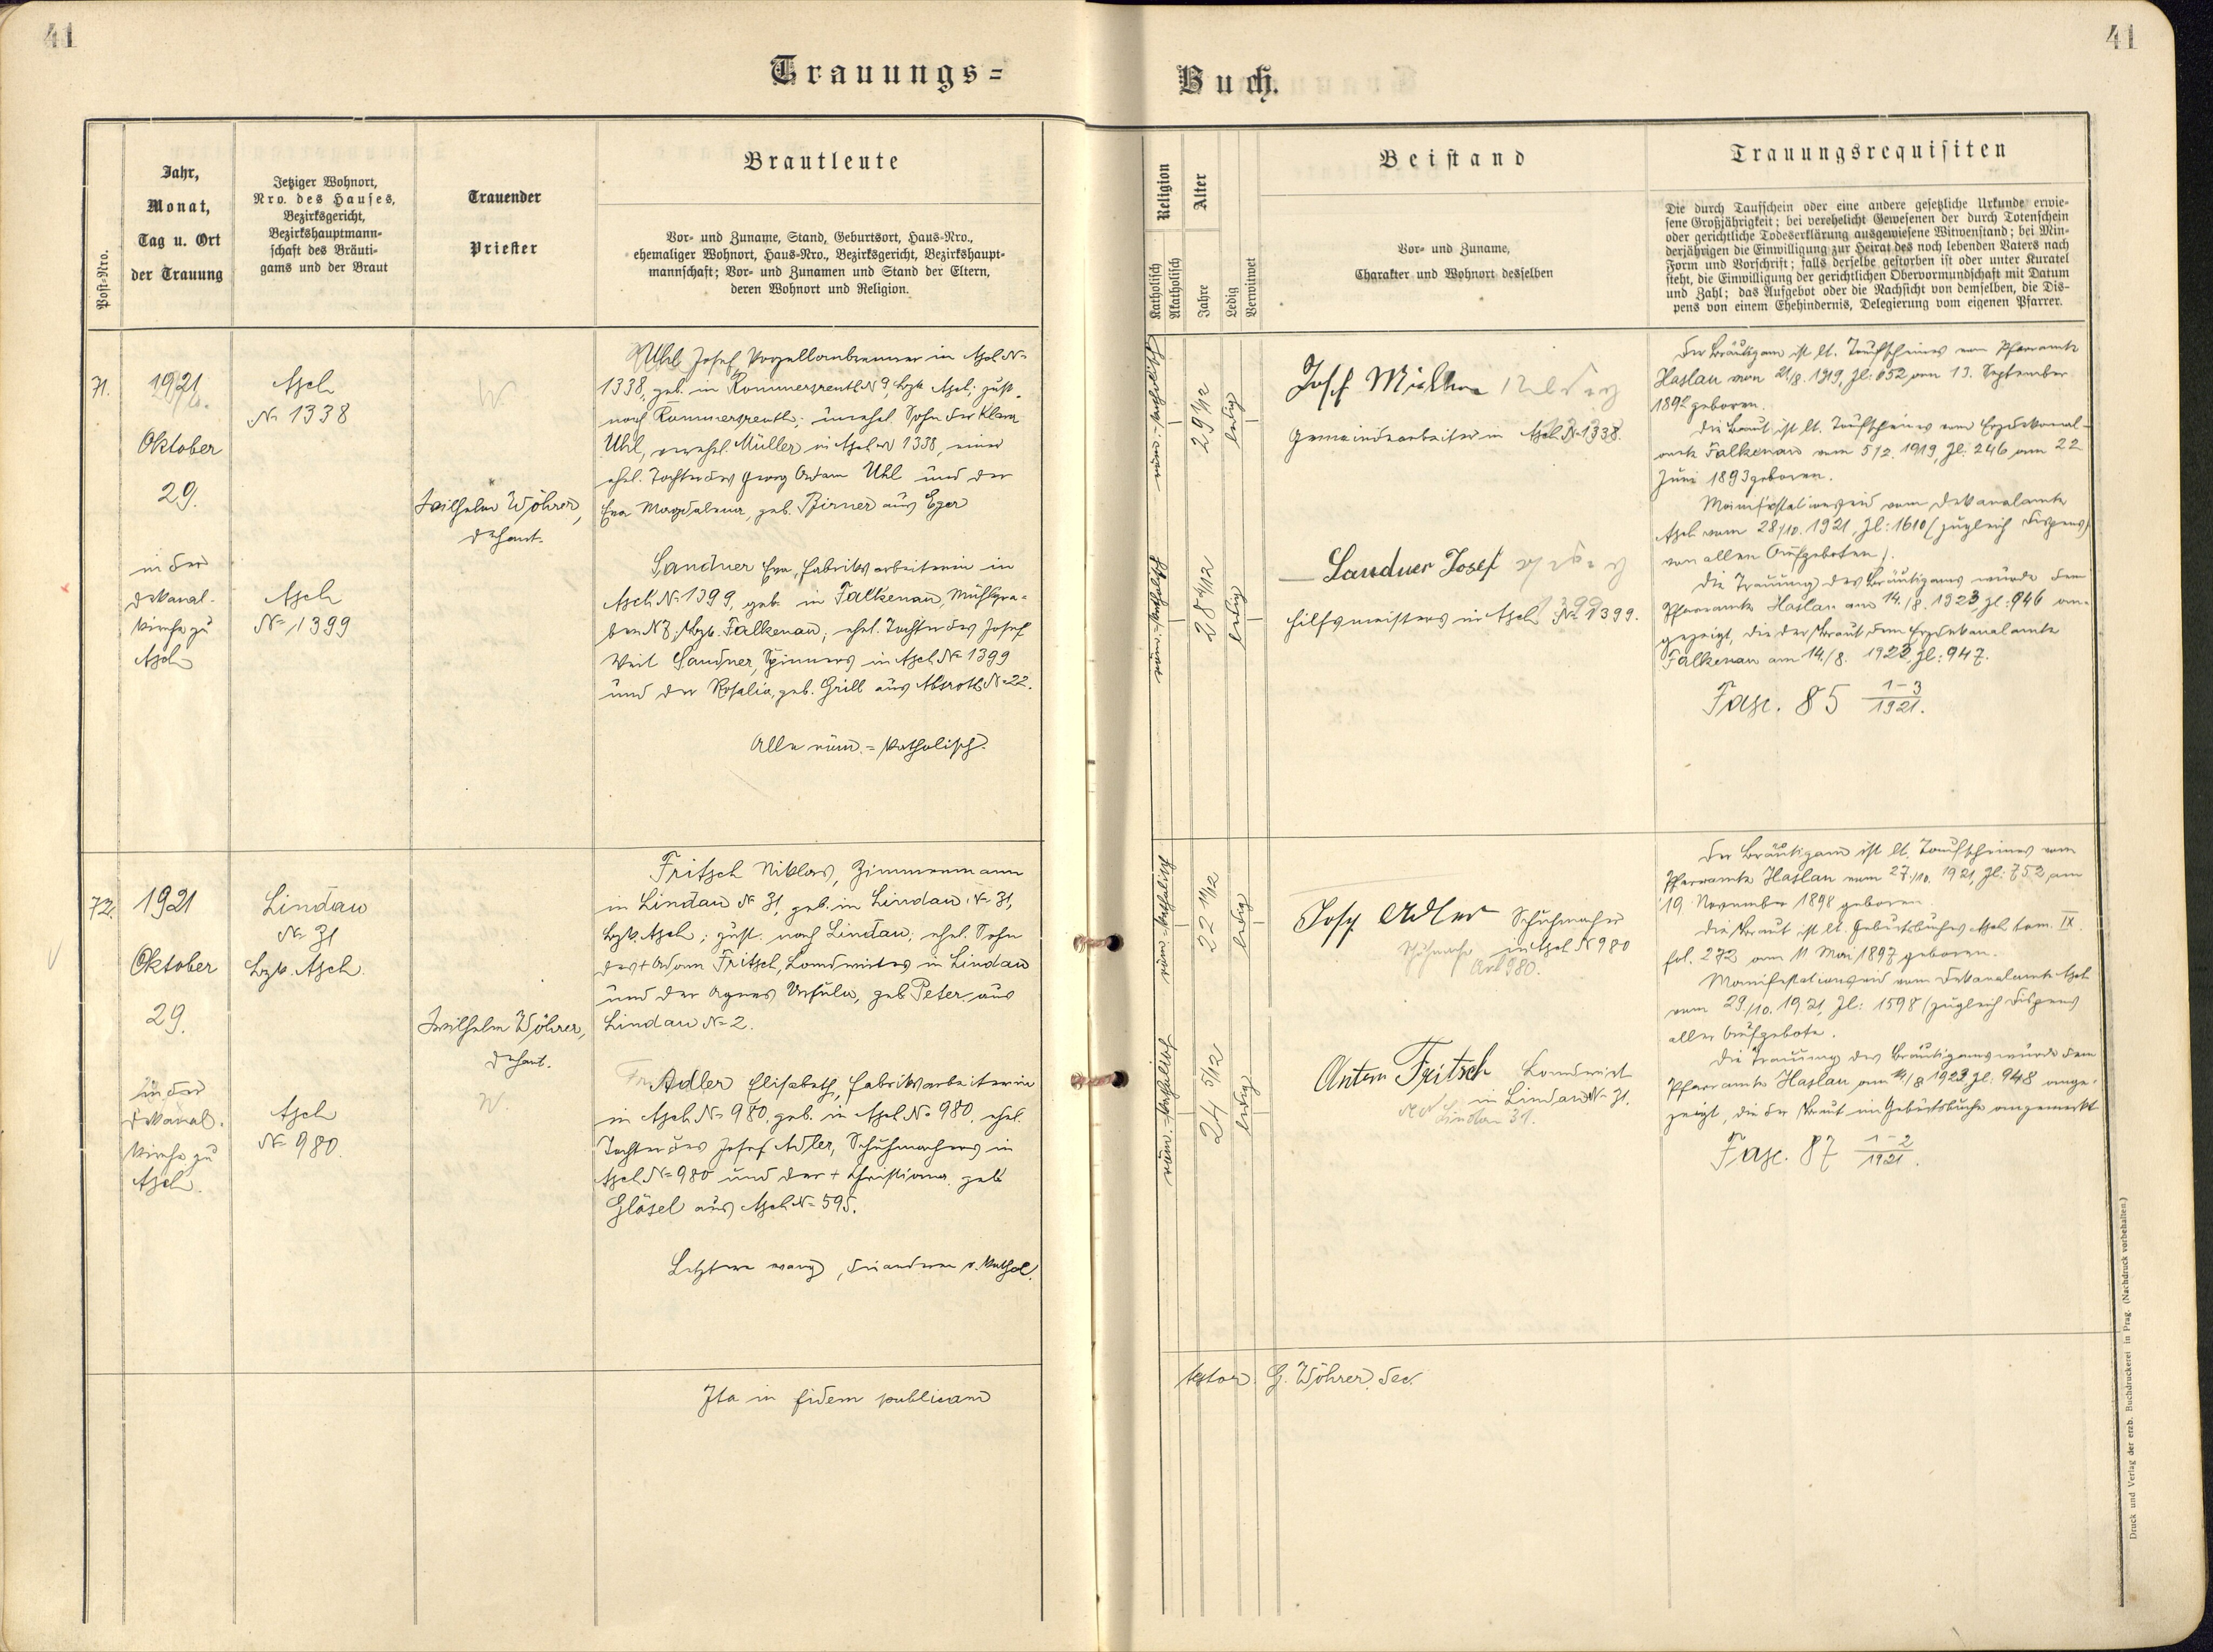 41
41
Trauungs=
Buch.
Post-Nro.
Jahr,
Monat,
Tag u. Ort
der Trauung
Jetziger Wohnort,
Nro. des Hauses,
Bezirksgericht,
Bezirkshauptmann-
schaft des Bräuti-
gams und der Braut
Trauender
Priester
Brautleute
Vor- und Zuname, Stand, Geburtsort, Haus-Nro.,
ehemaliger Wohnort, Haus-Nro., Bezirksgericht, Bezirkshaupt-
mannschaft; Vor- und Zunamen und Stand der Eltern,
deren Wohnort und Religion.
Religion
Katholisch
Akatholisch
Alter
Jahre
Ledig
Verwitwet
Beistand
Vor- und Zuname,
Charakter und Wohnort desselben
Trauungsrequisiten
Die durch Taufschein oder eine andere gesetzliche Urkunde erwie-
sene Großjährigkeit; bei verehelicht Gewesenen der durch Totenschein
oder gerichtliche Todeserklärung ausgewiesene Witwenstand; bei Min-
derjährigen die Einwilligung zur Heirat des noch lebenden Vaters nach
Form und Vorschrift; falls derselbe gestorben ist oder unter Kuratel
steht, die Einwilligung der gerichtlichen Obervormundschaft mit Datum
und Zahl; das Aufgebot oder die Nachsicht von demselben, die Dis-
pens von einem Ehehindernis, Delegierung vom eigenen Pfarrer.
71.
1921
Oktober
29.
in der
Dekanal-
kirche zu
Asch
Asch
No 1338
Asch
No 1399
Wilhelm Wöhrer,
Dechant.
Uhl Josef, Porzellanbrenner in Asch No
1338, geb. in Rommersreuth N 9, Bzk. Asch; zust.
nach Rommersreuth; unehel. Sohn der Klara
Uhl, verehel. Müller in Asch No 1338, einer
ehel. Tochter des Georg Adam Uhl und der
Eva Magdalena, geb. Pirner aus Eger
Sandner Eva, Fabriksarbeiterin in
Asch No 1399, geb. in Falkenau, Mühlgra-
ben N 7, Bzk. Falkenau, ehel. Tochter des Josef
Veit Sandner, Spinners in Asch No 1399
und der Rosalia, geb. Grill aus Absroth No 22.
Alle röm.=katholisch.
röm.-katholisch
29 1/12
ledig
röm.-katholisch
28 4/12
ledig
Josef Müller
Gemeindearbeiter in Asch No 1338.
Sandner Josef
Hilfsmeisters in Asch No 1399.
Der Bräutigam ist lt. Taufscheines vom Pfarramte
Haslau vom 21/8. 1919, Zl: 652 am 13. September
1892 geboren.
Die Braut ist lt. Taufscheines vom Erzdekanal-
amte Falkenau vom 5/2. 1919, Zl: 246 am 22
Juni 1893 geboren.
Manifestationseid vom Dekanalamte
Asch vom 28/10. 1921, Zl: 1610 (zugleich Dispens
von allen Aufgeboten).
Die Trauung des Bräutigams wurde dem
Pfarramte Haslau am 14./8. 1923 Zl: 946 an-
gezeigt, die der Braut dem Erzdekanalamte
Falkenau am 14./8. 1923, Zl: 947.
Fasc. 85 1-3/1921.
72.
1921
Oktober
29.
in der
Dekanal-
kirche zu
Asch.
Lindau
No 31
Bzk. Asch
Asch
No 980.
Wilhelm Wöhrer,
Dechant.
Fritsch Niklas, Zimmermann
in Lindau No 31, geb. in Lindau No 31,
Bzk. Asch; zust. nach Lindau; ehel. Sohn
des + Adam Fritsch, Landwirtes in Lindau
und der Agnes Ursula, geb. Peter aus
Lindau No 2.
Adler Elisabeth, Fabriksarbeiterin
in Asch No 980, geb. in Asch No 980, ehel.
Tochter des Josef Adler, Schuhmachers in
Asch No 980 und der + Christiana, geb.
Gläsel aus Asch No 595.
Letztere evang., die anderen r. kathol.
röm.-katholisch
22 11/12
ledig
röm.-katholisch
24 5/12
ledig
Josef Adler Schuhmacher
in Asch N 980
Anton Fritsch Landwirt
in Lindau No 31.
Lindau 31.
Der Bräutigam ist lt. Taufscheines vom
Pfarramte Haslau vom 27./10. 1921, Zl: 752 am
19. November 1898 geboren.
Die Braut ist lt. Geburtsbuches Asch tom. IX.
fol. 272 am 11 Mai 1897 geboren.
Manifestationseid vom Dekanalamte Asch
vom 29./10. 1921, Zl: 1598 (zugleich Dispens
aller Aufgebote.
Die Trauung des Bräutigams wurde dem
Pfarramte Haslau am 14/8 1923, Zl: 948 ange-
zeigt, die der Braut im Geburtsbuche angemerkt
Fasc. 87 1-2/1921.
Ita in fidem publicam
testor. G. Wöhrer, Dec.
Druck und Verlag der erzb. Buchdruckerei in Prag. (Nachdruck vorbehalten.)